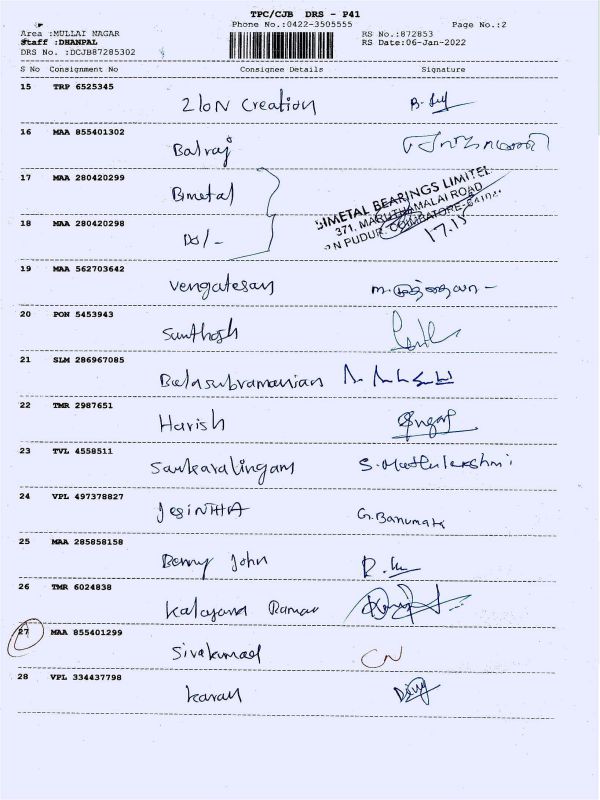 TPC/CJB DRS - P41
Phone No.:0422-3505555 Page No.:2
Area :MULLAI NAGAR RS No.:872853
Staff :DHANPAL RS Date:06-Jan-2022
DRS No. :DCJB87285302
S No Consignment No Consignee Details Signature
15 TRP 6525345
Zion Creation
16 MAA 855401302
Balraj
17 MAA 280420299
Bimetal
BIMETAL BEARINGS LIMITED
371, MARUTHAMALAI ROAD
P N PUDUR. COIMBATORE-641041
17.15
18 MAA 280420298
Do/-
19 MAA 562703642
Vengatesan
20 PON 5453943
Santhosh
21 SLM 286967085
Balasubramanian
22 TMR 2987651
Harish
23 TVL 4558511
Sankaralingam S. Muthulakshmi
24 VPL 497378827
Jesintha G. Banumati
25 MAA 285858158
Benny John
26 TMR 6024838
Kalayana Raman
27 MAA 855401299
Sivakumar CN
28 VPL 334437798
Karan